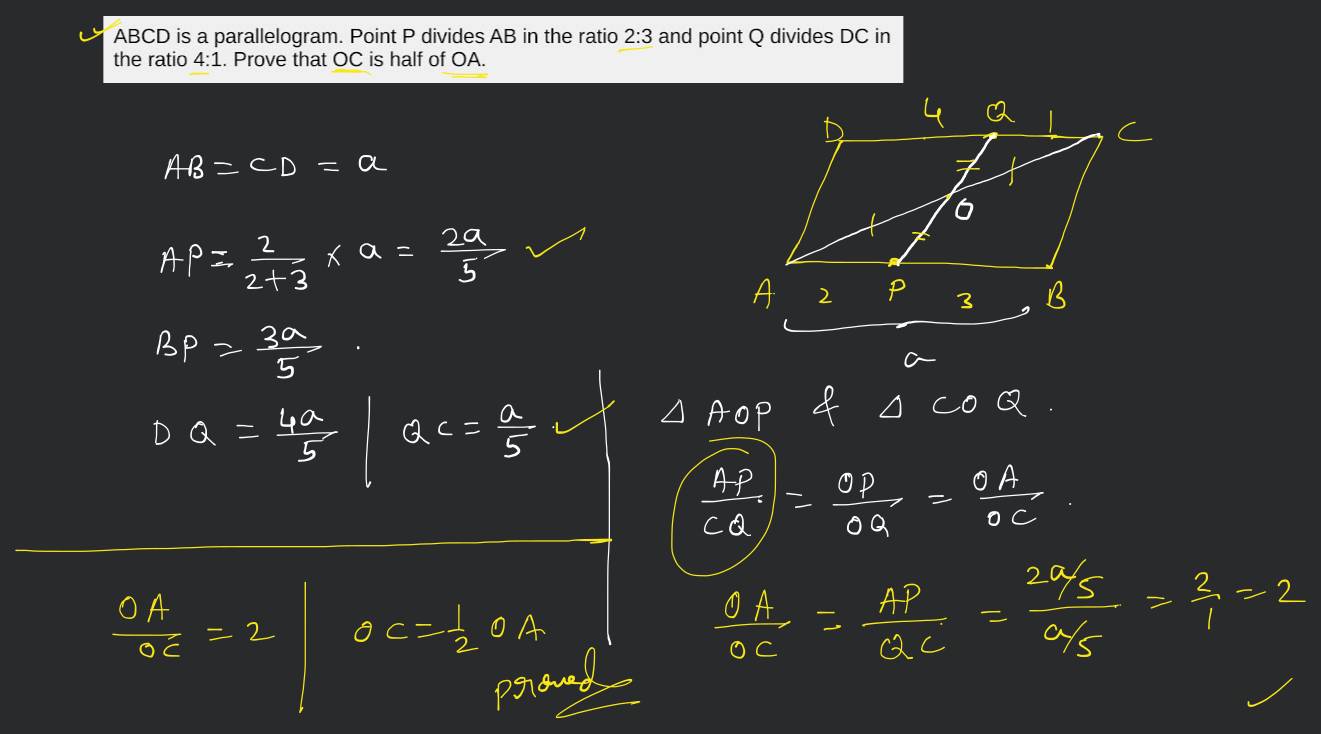 ABCD is a parallelogram. Point P divides AB in the ratio 2:3 and point Q divides DC in
the ratio 4:1. Prove that OC is half of OA.
D 4 Q 1 C
O
A 2 P 3 B
a
AB = CD = a
AP = 2/(2+3) × a = 2a/5
BP = 3a/5 .
DQ = 4a/5 | QC = a/5 .
△ AOP & △ COQ .
AP/CQ = OP/OQ = OA/OC .
OA/OC = AP/QC = (2a/5)/(a/5) = 2/1 = 2
OA/OC = 2 | OC = 1/2 OA
proved